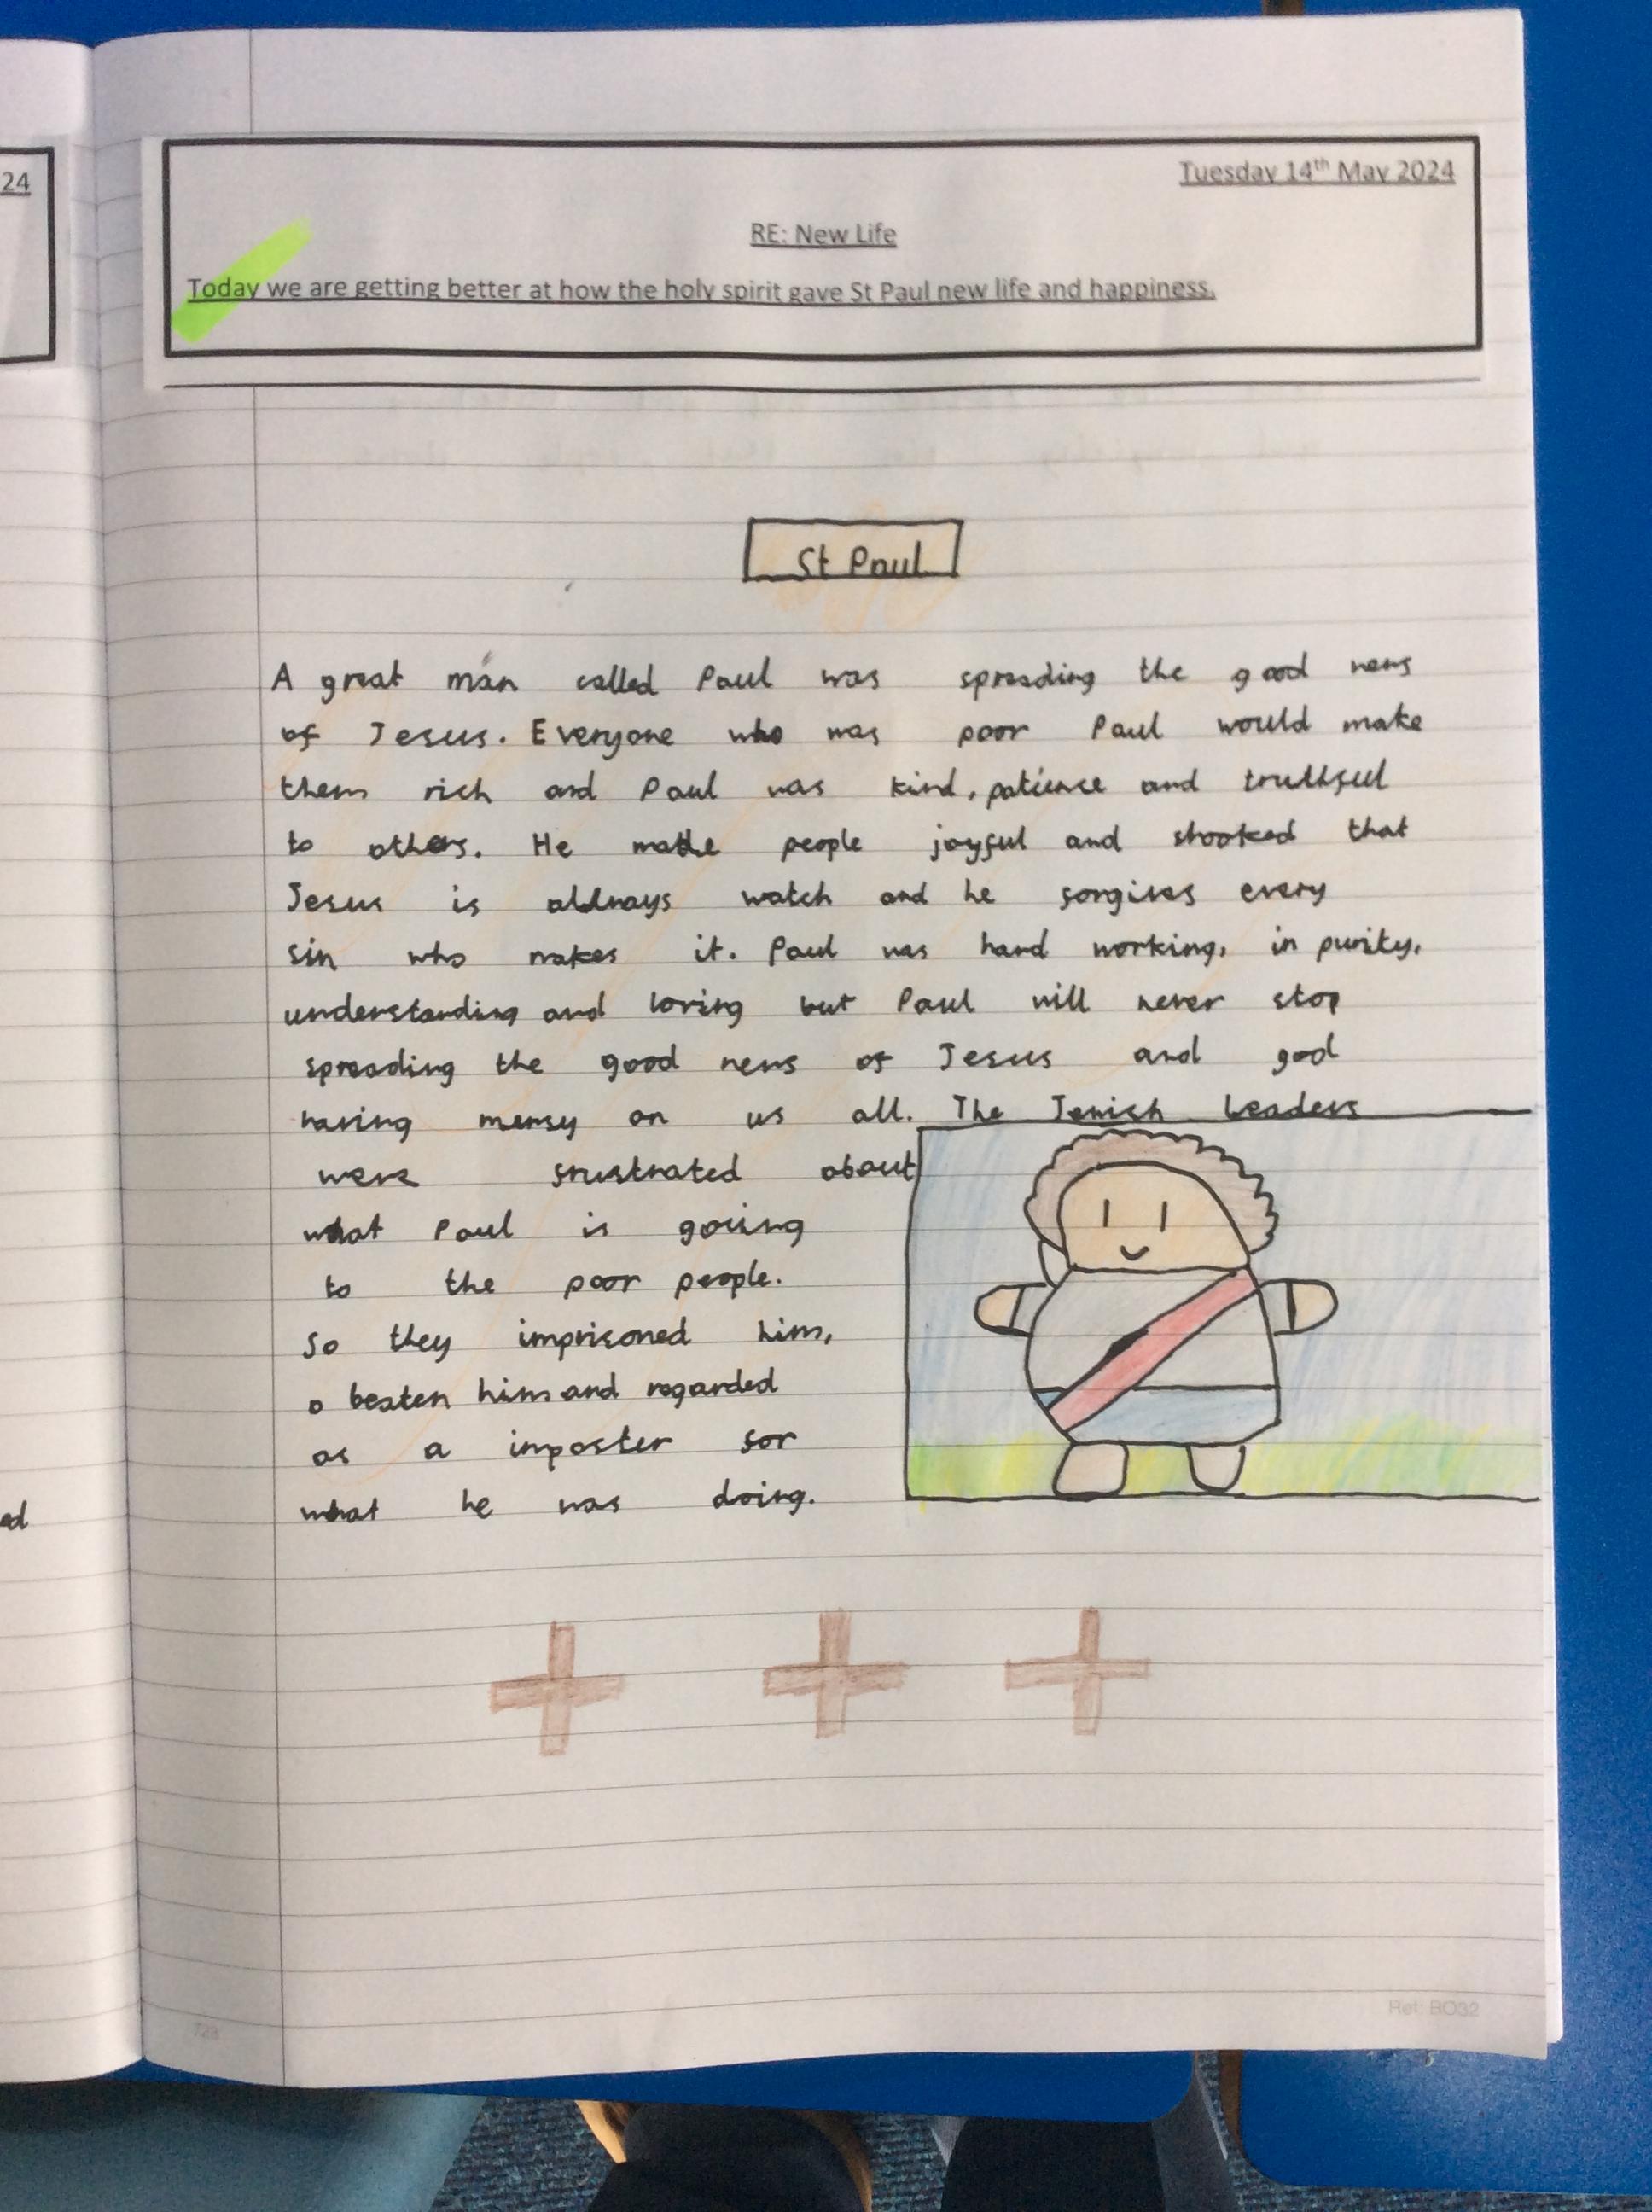 24
Tuesday 14th May 2024
RE: New Life
Today we are getting better at how the holy spirit gave St Paul new life and happiness.
St Paul
A great man called Paul was spreading the good news
of Jesus. Everyone who was poor Paul would make
them rich and Paul was kind, patience and truthful
to others. He made people joyful and shooked that
Jesus is always watch and he forgives every
sin who makes it. Paul was hard working, in purity,
understanding and loving but Paul will never stop
spreading the good news of Jesus and god
having mersy on us all. The Jewish Leaders
were frustrated about
what Paul is going
to the poor people.
So they imprisoned him,
beaten him and regarded
as a imposter for
what he was doing.
ed
Ref: BO32